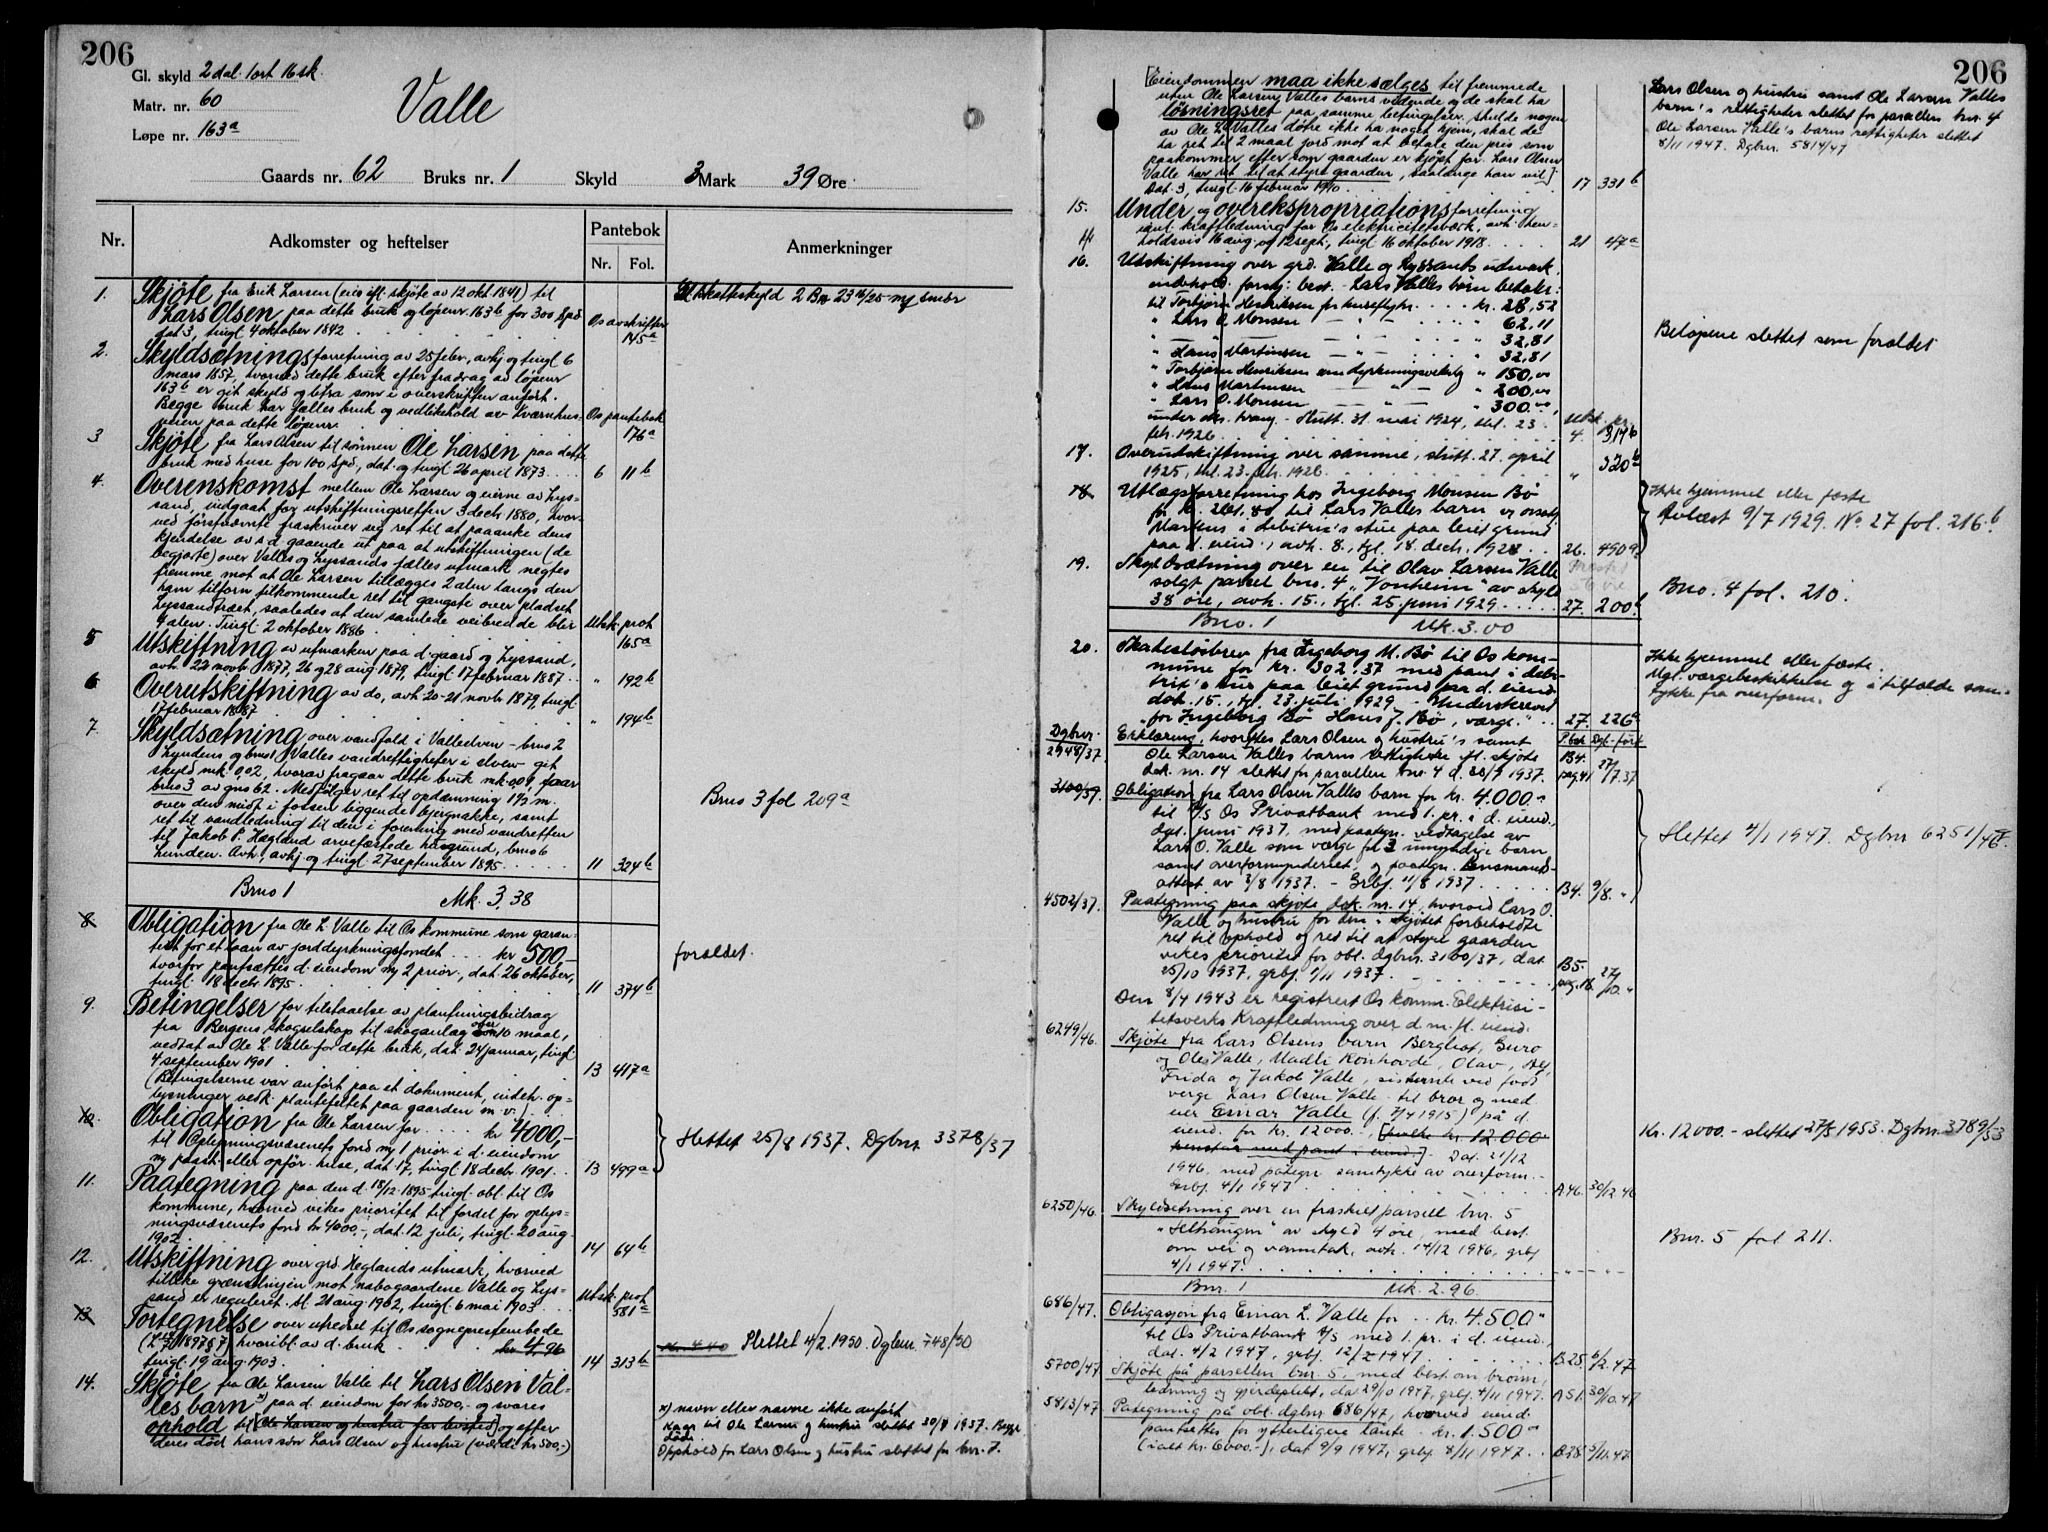 206
Gl. skyld 2 dal. 1 ort 16 sk.
Matr. nr. 60
Løpe nr. 163a
Valle
Gaards nr. 62 Bruks nr. 1 Skyld 3 Mark 39 Øre
Nr. Adkomster og heftelser Pantebok Anmerkninger
Nr. Fol.
1. Skjøte fra Erik Larsen (eie ifl. skjøte av 12 okt 1841) til
Lars Olsen paa dette bruk og løpenr. 163b for 300 Spd
dat 3, tingl 4 oktober 1842 Os avskrifter 145a
Gl. skatteskyld
2. Skyldsætningsforretning av 25 febr, avhj og tingl 6
mars 1857, hvorved dette bruk efter fradrag av løpenr
163b er git skyld og litra som i overskriften anført.
Begge bruk har fælles bruk og vedlikehold av Kværnhus-
veien paa dette løpenr. Os pantebok 176a
3 Skjøte fra Lars Olsen til sønnen Ole Larsen paa dette
bruk med huse for 100 Spd, dat. og tingl 26 april 1873 6 11b
4. Overenskomst mellem Ole Larsen og eierne av Lys-
sand, indgaat for utskiftningsretten 3 decbr 1880, hvor-
ved førstnævnte fraskriver sig ret til at paaanke dens
kjendelse av s.d. gaaende ut paa at utskiftningen (de
begjærte) over Valles og Lyssands fælles utmark negtes
fremme mot at Ole Larsen tillægges 2 alen langs den
ham tilforn tilkommende ret til gangsti over pladset
Lyssandtræet, saaledes at den samlede veibredde blir
4 alen. Tingl 2 oktober 1886 Utsk. prot 165a
5 Utskiftning av utmarken paa d. gaard og Lyssand,
avh. 22 novb 1877, 26 og 28 aug 1879, tingl 17 februar 1887 " 192b
6 Overutskiftning av do, avh 20-21 novbr 1879, tingl
17 februar 1887 " 194b
7. Skyldsætning over vandfald i Valleelven - brno 2
Lyndens og brno 1 Valles vandrettigheter i elven - git
skyld mk. 0,02, hvorav fragaar dette bruk mk 0,01, faar
brno 3 av gno 62. Medfølger ret til opdæmning 1½ m.
over den midt i fossen liggende bjergnakke, samt
ret til vandledning til den i forening med vandretten
til Jakob P. Hæglund arvefæstede husgrund, brno 6
Lunden. Avh, avhj og tingl. 27 september 1895 11 324b
Brno 3 fol 209a
Brno 1 Mk. 3,38
8 Obligation fra Ole L. Valle til Os kommune som garan-
tist for et laan av jorddyrkningsfondet kr 500,-
hvorfor pantsættes d. eiendom m/ 2 prior, dat. 26 oktober,
tingl 18 decbr 1895. 11 374b
foraldet.
9. Betingelser for tilstaaelse av plantningsbidrag
fra Bergens skogselskap til skoganlæg over 10 maal,
vedtat av Ole L. Valle for dette bruk, dat. 24 januar, tingl
4 september 1901 13 417a
(Betingelserne var anført paa et dokument, indeh. op-
lysninger vedk. plantefeltet paa gaarden m.v.)
10. Obligation fra Ole Larsen for kr 4000,-
til Oplysningsvæsenets fond m/ 1 prior. i d. eiendom
m/ paast. eller opfør. huse, dat. 17, tingl 18 decbr. 1901. 13 499a
Slettet 25/8 1937. Dgbnr. 3378/37
11. Paategning paa den d. 18/12 1895 tingl. obl. til Os
kommune, hvorved vikes prioritet til fordel for oplys-
ningsvæsenets fond kr 4000,-, dat. 12 juli, tingl. 20 aug
1902. 14 64b
12. Utskiftning over grd. Heglands utmark, hvorved
tillike grænselinjen mot nabogaardene Valle og Lys-
sand er reguleret. sl. 21 aug. 1902, tingl. 6 mai 1903 Utsk. prot 581a
13. Fortegnelse over utredsel til Os sogneprestembede
hvoribl. av d. bruk kr. 4,96
tingl. 19 aug. 1903. 14 313b
Slettet 11/2. 1950. Dgbnr. 748/50
14. Skjøte fra Ole Larsen Valle til Lars Olsen Val-
les barn x) paa d. eiendom for kr 3500,- og svares
ophold til [Ole Larsen og hustru for livstid] og efter
deres død hans søn Lars Olsen og hustru (værdi kr 500,-)
x) navn eller navne ikke anført
Kaar til Ole Larsen og hustru slettet 30/7 1937. Begge
døde
Opphold for Lars Olsen og hustru slettet for bnr. 7.
206
[Eiendommen maa ikke sælges til fremmede
uten Ole Larsen Valles barns vidende og de skal ha
løsningsret paa samme betingelser. Skulde nogen
av Ole L. Valles døtre ikke ha noget hjem, skal de
ha ret til 2 maal jord mot at betale den pris som
paakommer efter som gaarden er kjøpt for. Lars Olsen
Valle har ret til at styre gaarden, saalænge han vil].
Dat. 3, tingl. 16 februar 1910. 17 331b
Lars Olsen og hustru samt Ole Larsen Valles
barn's rettigheter slettet for parsellen bnr. 4
Ole Larsen Valle's barns rettigheter slettet
8/11 1947. Dgbnr. 5814/47
15. Under og overekspropriationsforretning
vedk. kraftledning for Os elektricitetsverk, avh. hen-
holdsvis 16 aug. og 12 sept., tingl 16 oktober 1918. 21 47a
16. Utskiftning over grd. Valle og Lyssands utmark,
indehold. forskj. best. - Lars Valles børn betaler:
til Torbjørn Henriksen for huseflytn. kr. 28,52
" Lars O. Monsen - " - " 62,11
" - " - " 32,81
" Hans Martinsen - " - " 32,81
" Torbjørn Henriksen som dyrkningsvederlag " 150,00
" Hans Martinsen - " - " 200,00
" Lars O. Monsen - " - " 300,00,
under eks. tvang. - Slutt. 31 mai 1924, tgl. 23.
feb. 1926. Utsk. pr. 4. 314b
Beløpene slettet som foraldet
17. Overutskiftning over samme, slutt. 27. april
1925, tgl. 23. feb. 1926. " 320b
18. Utlægsforretning hos Ingeborg Monsen Bø
for kr. 261.80 til Lars Valles barn
Martens i debitrix's stue paa leiet grund
paa d. eiend., avh. 8., tgl. 18. decb. 1928 26. 490a
Ikke hjemmel eller fæste
Avlæst 9/7 1929. No 27 fol. 216b
19. Skyldsætning over en til Olav Larsen Valle
solgt parsel bno. 4 "Vonheim" av skyld
38 øre, avh. 15., tgl. 25. juni 1929. 27. 200b
Bno. 4 fol. 210.
Bno. 1 Mk. 3.00
20. Skadesløsbrev fra Ingeborg M. Bø til Os kom-
mune for kr. 302.37 med pant i debi-
trix's hus paa leiet grund paa d. eiend.
dat. 15., tgl. 23. juli 1929 - Underskrevet
"for Ingeborg Bø Hans J. Bø, værge." 27. 226a
Ikke hjemmel eller fæste.
Mgl. værgebeskikkelse og i tilfælde sam-
tykke fra overform.
Dgbnr. P.bok Dgb.-ført
2948/37. Erklæring, hvorefter Lars Olsen og hustru's samt
Ole Larsen Valles barns rettigheter ifl. skjøte
dok. nr. 14 slettet for parsellen bno. 4 d. 30/7 1937. B4. pag. 41 27/7.37
3100/37. Obligation fra Lars Olsen Valles barn for kr. 4.000,-
til A/S Os Privatbank med 1. pr. i d. eiend.,
dat. juni 1937, med paategn. vedtagelse av
Lars O. Valle som værge for 3 umyndige barn
samt overformynderiet, og paategn. lensmands-
attest av 3/8 1937. - Grbf. 11/8 1937. B4. 9/8. "
Slettet 4/1 1947. Dgbnr 6251/46.
4502/37. Paategning paa skjøte dok. nr. 14, hvorved Lars O.
Valle og hustru for den i skjøtet forbeholdte
ret til ophold og ret til at styre gaarden
vikes prioritet for obl. dgbnr. 3100/37, dat.
25/10 1937, grbf. 1/11 1937. B5. pag. 18. 27/10. "
Den 8/4 1943 er registrert Os komm. Elektrisi-
tetsverks Kraftledning over d. m. fl. eiend.
6249/46. Skjøte fra Lars Olsens barn Berghot, Guro
og Ole Valle, Madli Koinhovde, Olav, Alf,
Frida og Jakob Valle, sistemte ved født
verge Lars Olsen Valle - til bror og med
eier Einar Valle (f. 7/4 1915) på d.
eiend. for kr. 12000.-, [hvilke kr. 12.000
henstår med pant i eiend.]. Dat. 21/12
1946, med påtegn. samtykke av overform. -
Grbf. 4/1 1947 A46. 30/12.46
Kr. 12000.- slettet 27/8 1953. Dgbnr. 3789/53
6250/46. Skyldsetning over en fraskilt parsell bnr. 5
"Heltrængen" av skyld 4 øre, med best.
om vei og vanntak, avh. 14/12 1946, grbf
4/1 1947. " - " - "
Bnr. 5 fol 211.
Bnr. 1 Mk. 2.96
686/47. Obligasjon fra Einar L. Valle for kr. 4.500,-
til Os Privatbank A/S med 1. pr. i d. eiend.
dat. 4/2 1947, grbf. 12/2 1947 B.25. 6/2.47
5700/47. Skjøte på parsellen bnr. 5, med best. om brønn,
ledning og gjerdeplikt, dat 29/10 1947, grbf. 4/11 1947. A51. 30/10.47
5813/47. Påtegning på obl. dgbnr. 686/47, hvorved eiend.
pantsettes for ytterligere lånte kr. 1.500,-
(ialt kr. 6000.-), dat 9/9 1947, grbf. 8/11 1947. B.28. 5/11.47